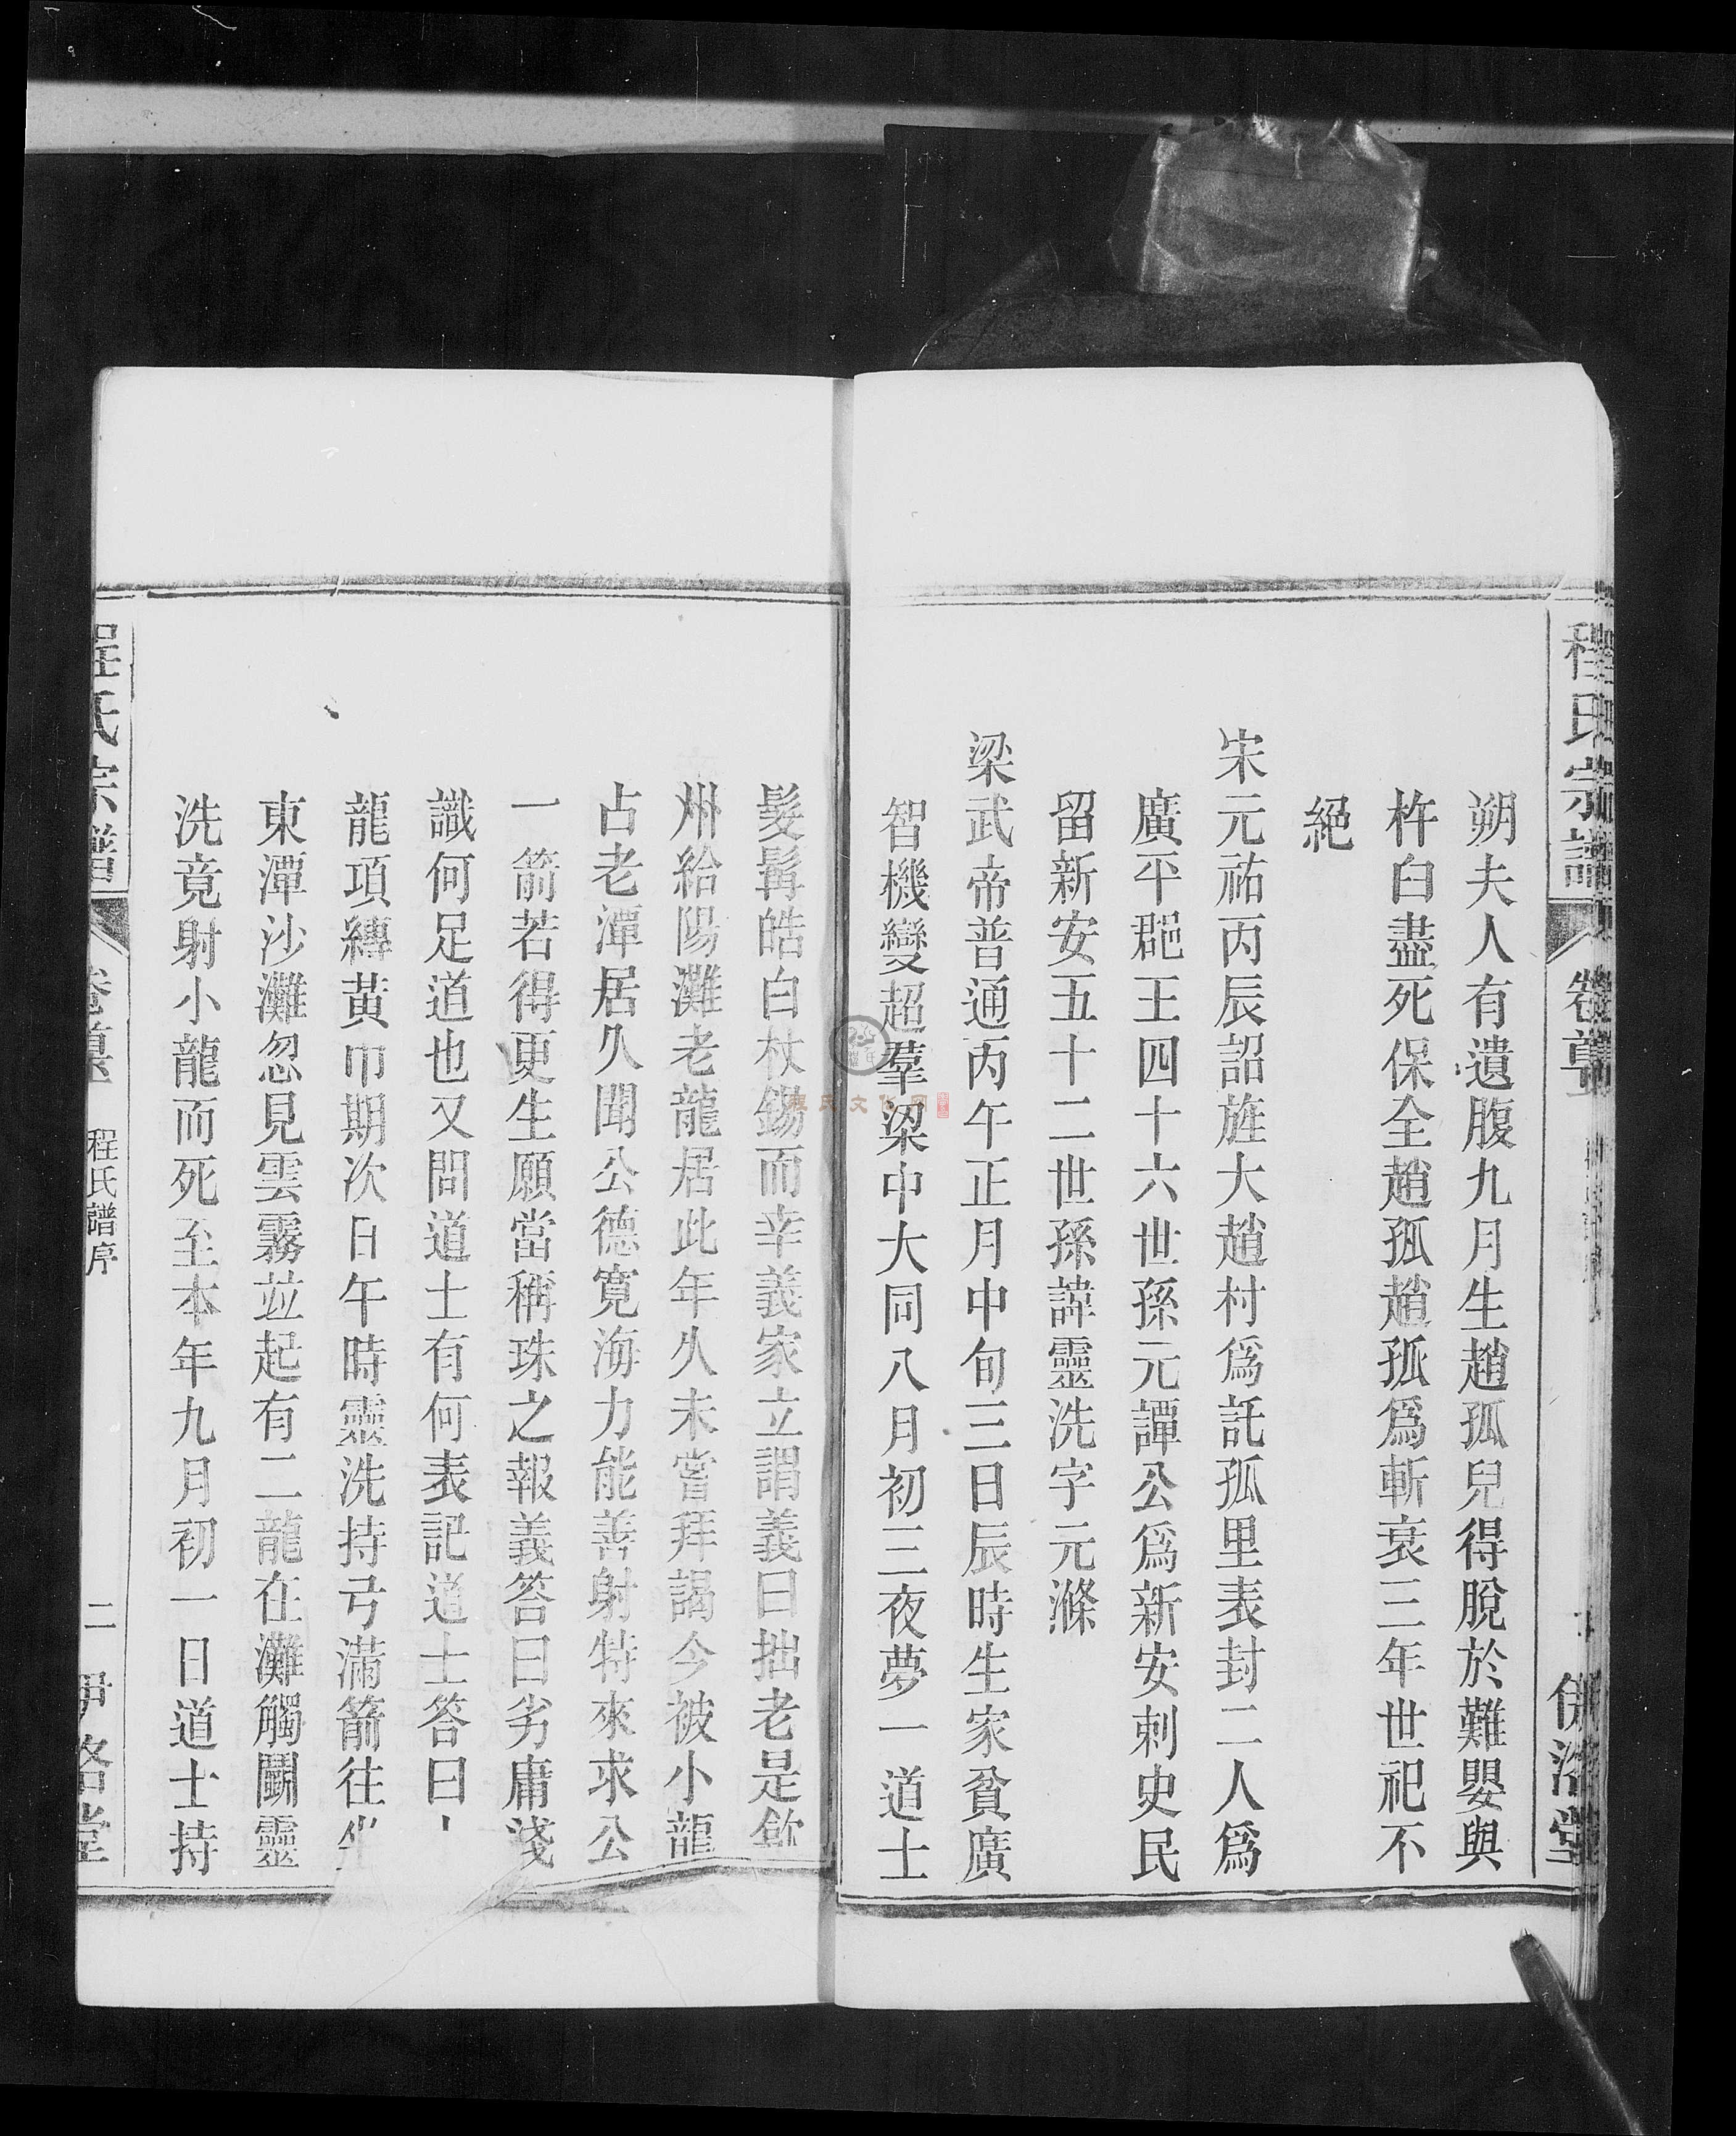 朔夫人有遺腹九月生趙孤兒得脫於難嬰與
杵臼盡死保全趙孤趙孤爲斬衰三年世祀不
絕
宋元祐丙辰詔旌大趙村爲託孤里表封二人爲
廣平郡王四十六世孫元譚公爲新安刺史民
留新安五十二世孫諱靈洗字元滌
梁武帝普通丙午正月中旬三日辰時生家貧廣
智機變超羣梁中大同八月初三夜夢一道士
髮髯皓白杖錫而幸義家立謂義曰拙老是歙
州給陽灘老龍居此年久未嘗拜謁今被小龍
占老潭居久聞公德寬海力能善射特來求公
一箭若得更生願當稱珠之報義答曰劣庸淺
識何足道也又問道士有何表記道士答曰
龍項縛黃巾期次日午時靈洗持弓滿箭往
東潭沙灘忽見雲霧並起有二龍在灘觸鬭靈
洗竟射小龍而死至本年九月初一日道士持
程氏宗譜
程氏譜序
二
伊洛堂
程氏文化网